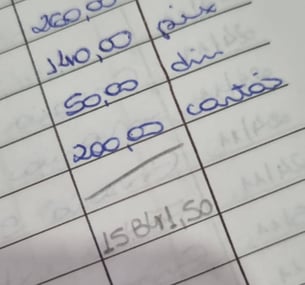 260,00
140,00 pix
50,00 din
200,00 cartão
15841,50